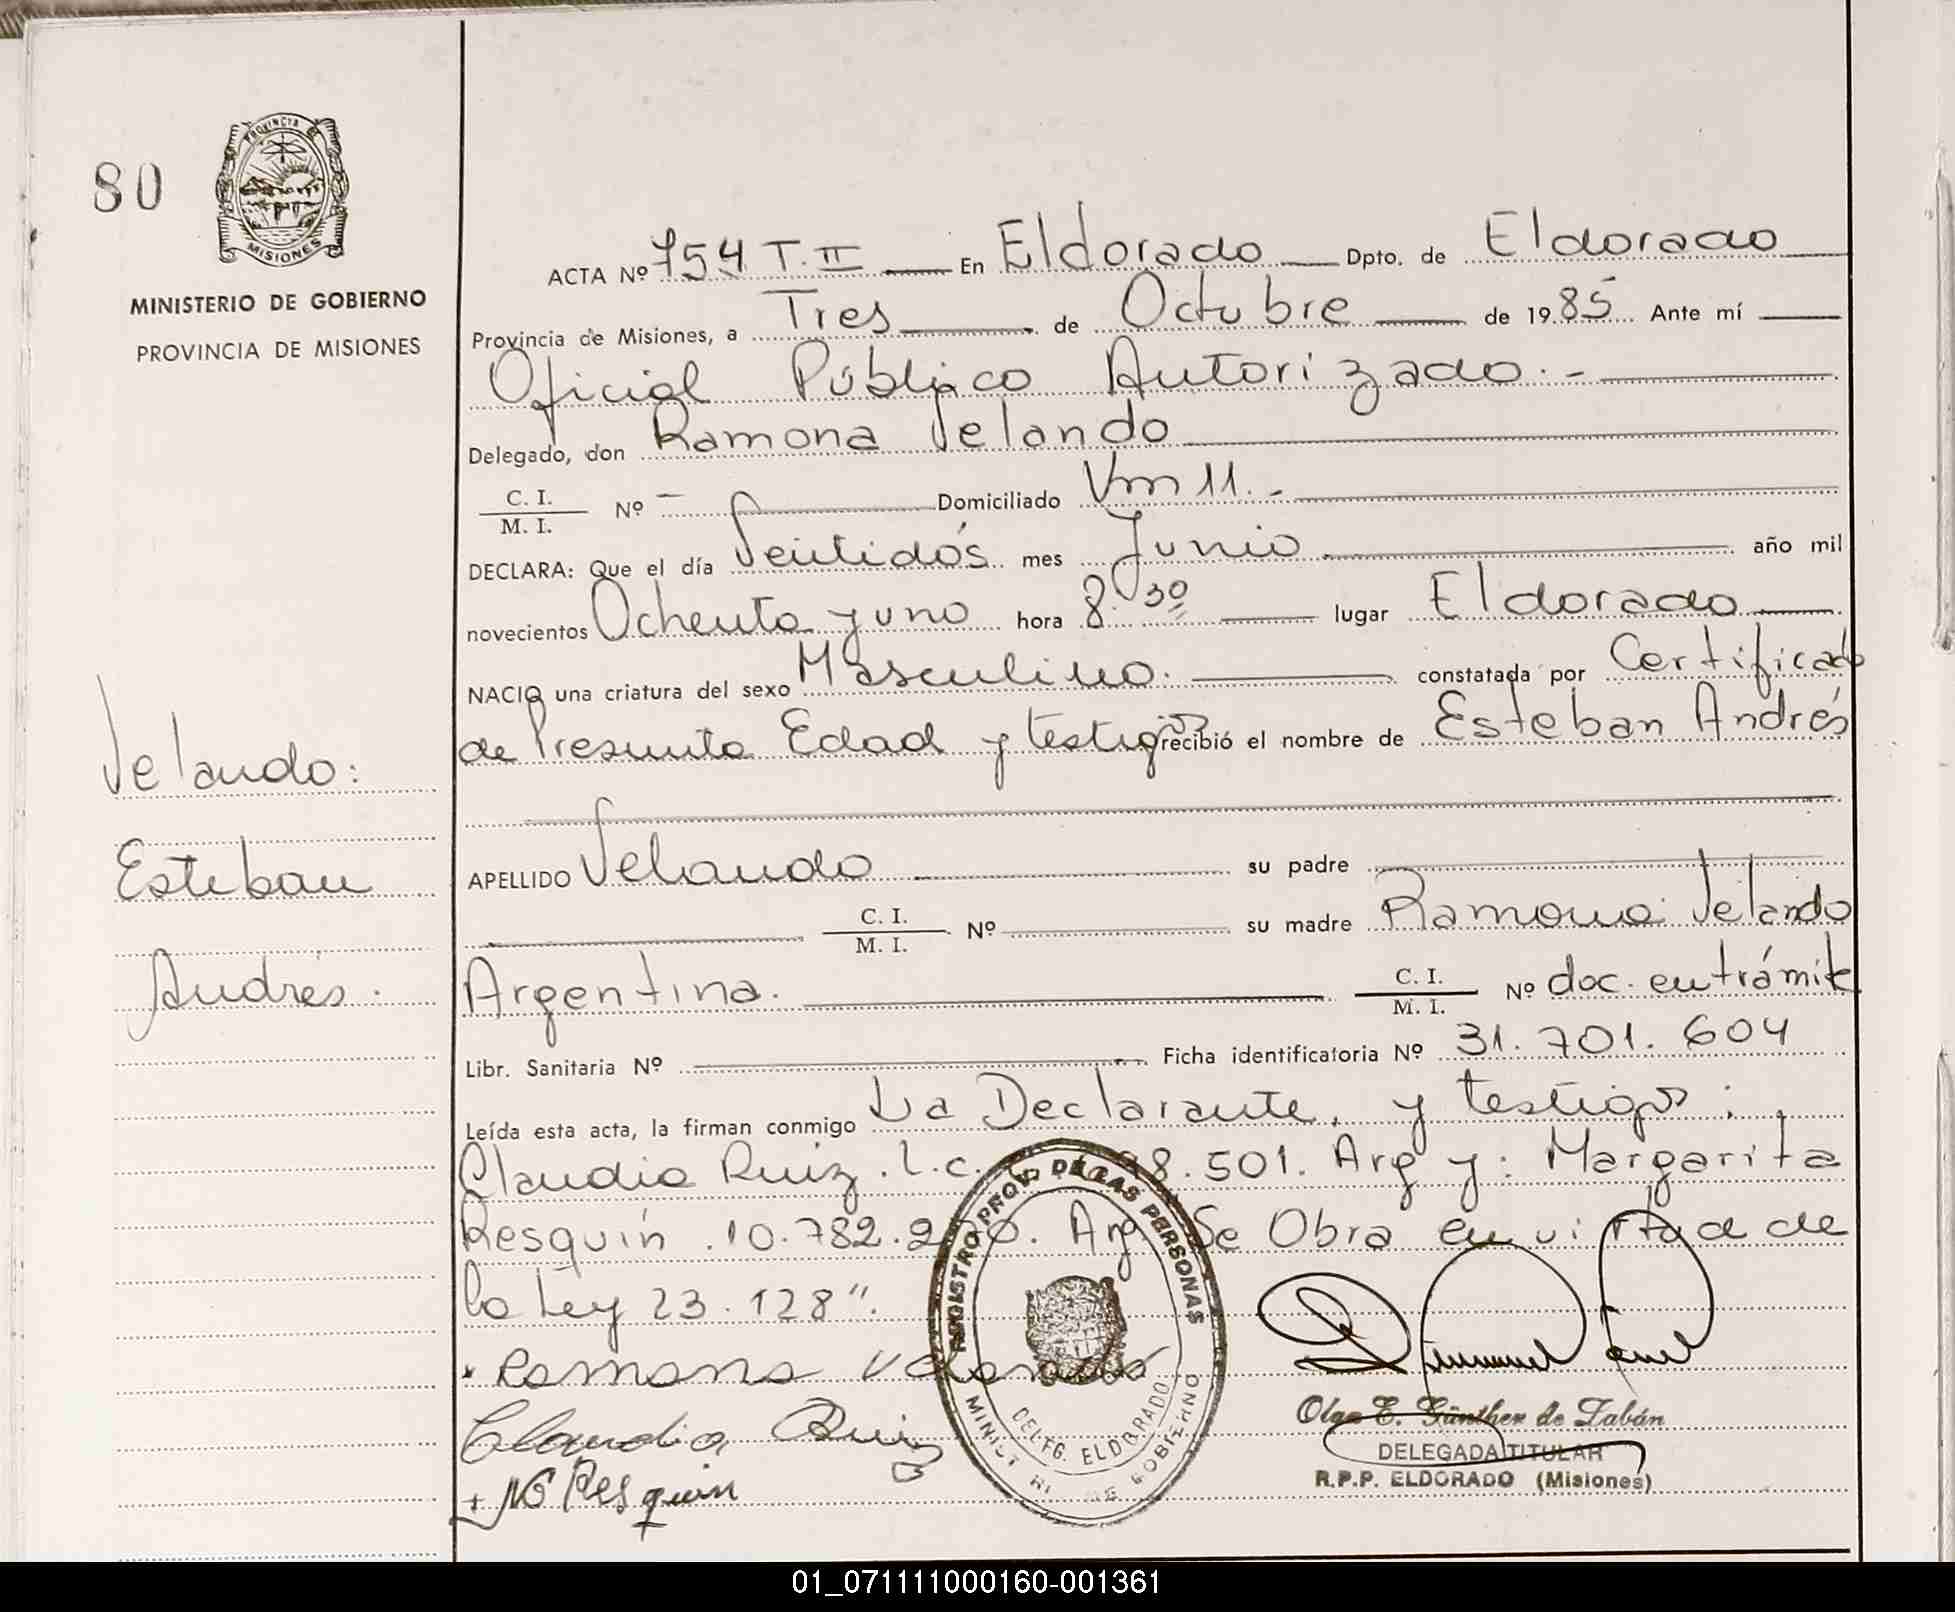 80
PROVINCIA
MISIONES
MINISTERIO DE GOBIERNO
PROVINCIA DE MISIONES
ACTA Nº 754 T. II En Eldorado Dpto. de Eldorado
Provincia de Misiones, a Tres de Octubre de 1985 Ante mí
Oficial Público Autorizado.-
Delegado, don Ramona Velando
C. I. / M. I. Nº - Domiciliado Km 11.-
DECLARA: Que el día Veintidós mes Junio año mil
novecientos Ochenta y uno hora 8.30 lugar Eldorado
NACIO una criatura del sexo Masculino. constatada por Certificado
de Presunta Edad y testigos recibió el nombre de Esteban Andrés
APELLIDO Velando su padre
C. I. / M. I. Nº su madre Ramona Velando
Argentina. C. I. / M. I. Nº doc. en trámite
Libr. Sanitaria Nº Ficha identificatoria Nº 31.701.604
Leída esta acta, la firman conmigo La Declarante, y testigos:
Claudia Ruiz. L.c. 98.501. Arg y: Margarita
Resquín. 10.782. Arg Se Obra en virtud de
la Ley 23.128".
Ramona Velando
Claudia Ruiz
Resquin
Velando:
Esteban
Andrés.
REGISTRO PROV. DE LAS PERSONAS
DELEG. ELDORADO
GOBIERNO
Olga E. Günther de Zabán
DELEGADA TITULAR
R.P.P. ELDORADO (Misiones)
01_071111000160-001361